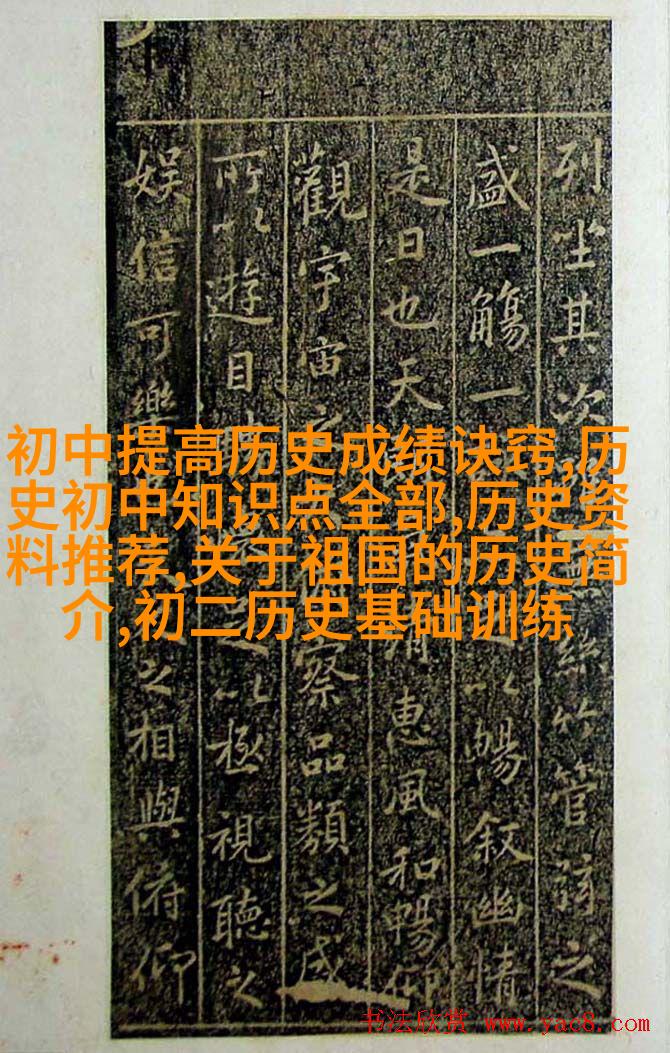 列坐其次絲竹管弦之
盛一觴一以暢叙幽情
是日也天惠風和暢仰
觀宇宙之察品類之盛
所以遊目以極視聽之
娛信可樂之相與俯仰
初中提高历史成绩诀窍,历
史初中知识点全部,历史资
料推荐,关于祖国的历史简
介,初二历史基础训练
书法欣赏 www.yac8.com